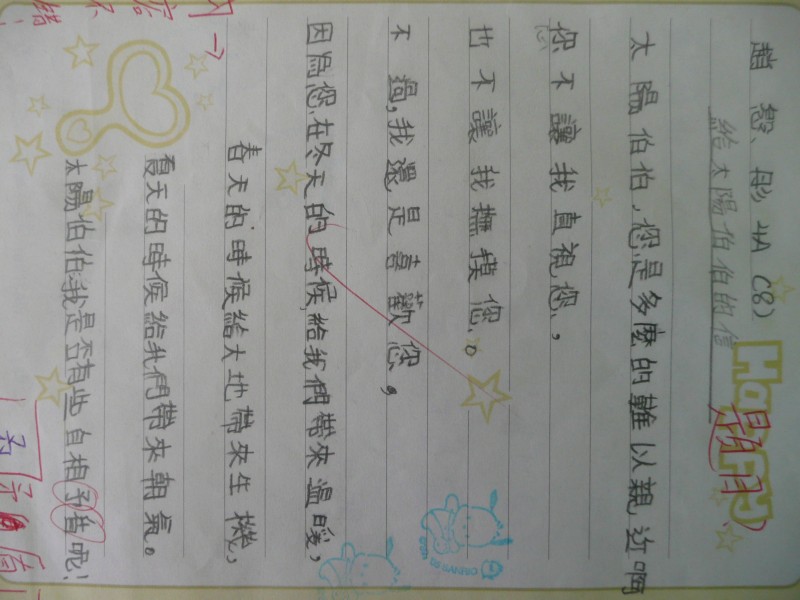 趙恩彤 4A (8)
給太陽伯伯的信
Happy
太陽伯伯,您是多麼的難以親近啊
您不讓我直視您,
也不讓我撫摸您。
不過,我還是喜歡您,
因為您在冬天的時候,給我們帶來溫暖,
春天的時候給大地帶來生機,
夏天的時候給我們帶來朝氣。
太陽伯伯:我是否有些自相矛盾呢!